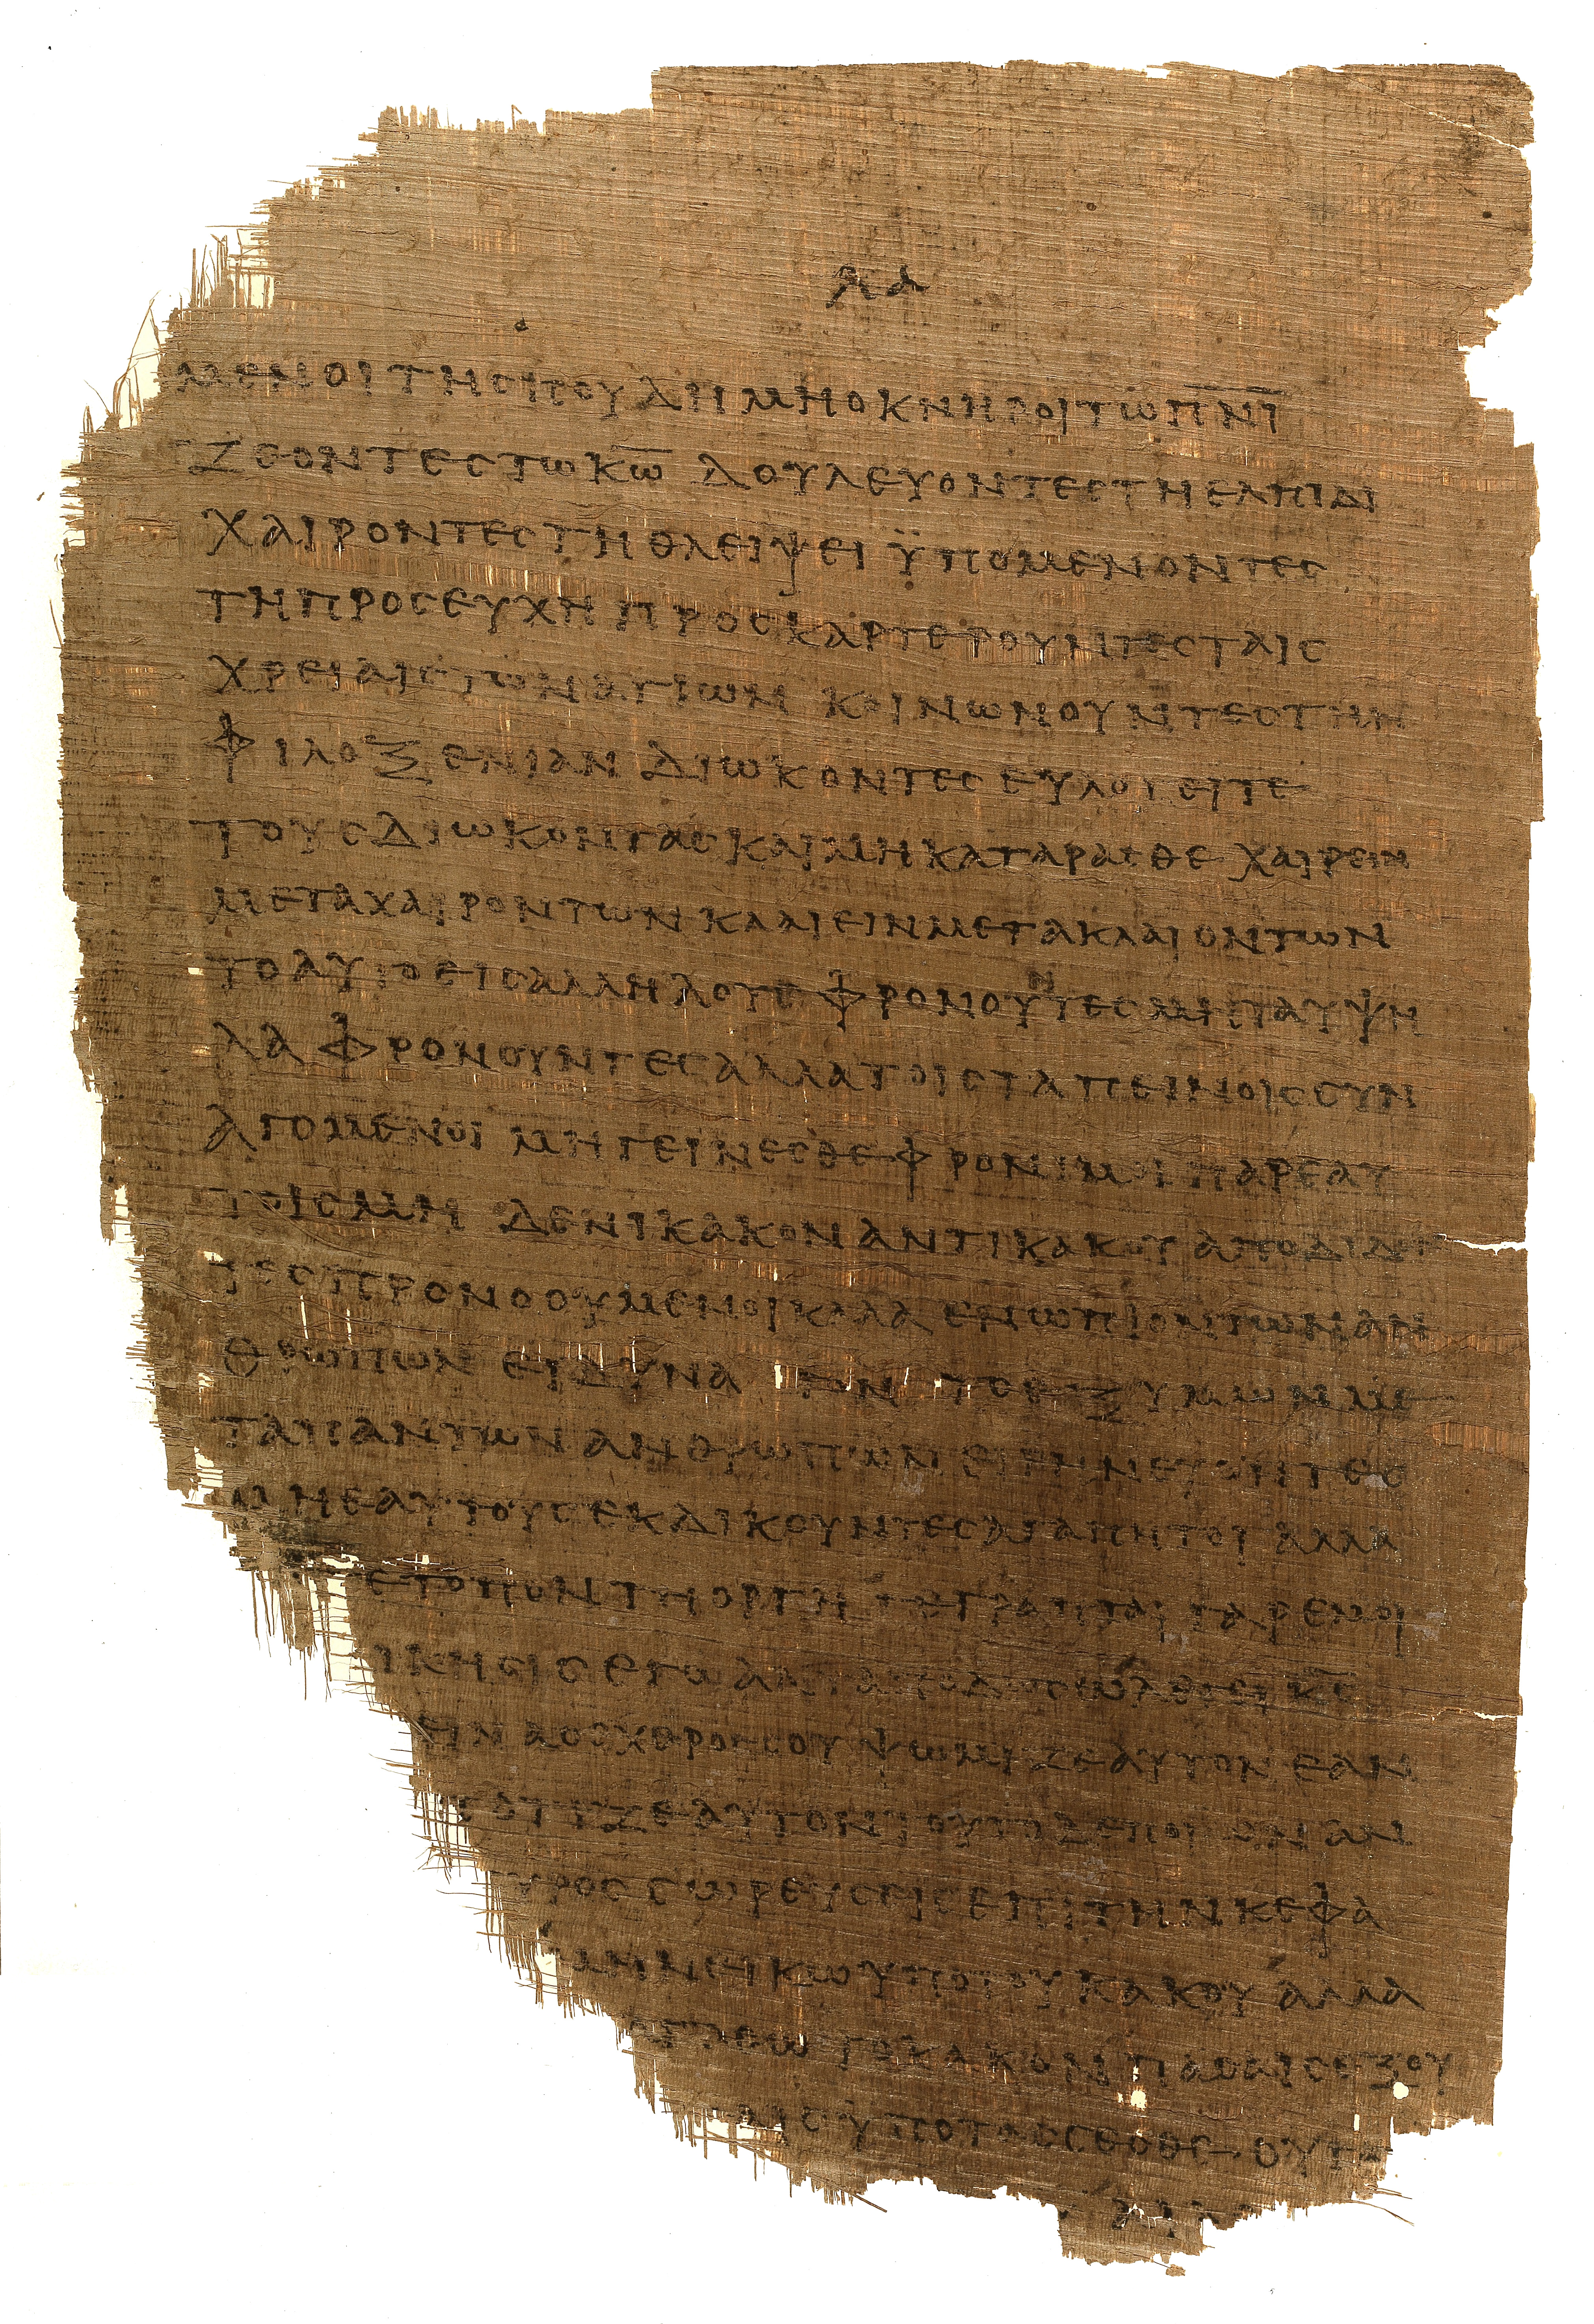 λα
μενοι τη σπουδη μη οκνηροι τω π̅ν̅ι̅
ζεοντες τω κ̅ω̅ δουλευοντες τη ελπιδι
χαιροντες τη θλειψει ϋπομενοντες
τη προσευχη προσκαρτερουντες ταις
χρειαις των αγιων κοινωνουντες την
φιλοξενιαν διωκοντες ευλογειτε
τους διωκοντας και μη καταρασθε χαιρειν
μετα χαιροντων κλαιειν μετα κλαιοντων
το αυτο εις αλληλους φρονουντες μη τα υψη
λα φρονουντες αλλα τοις ταπεινοις συν
αγομενοι μη γεινεσθε φρονιμοι παρ εαυ
τοις μηδενι κακον αντι κακου αποδιδο
τες προνοουμενοι καλα ενωπιον των αν
θρωπων ει δυνατον το εξ υμων με
τα παντων ανθρωπων ειρηνευοντες
μη εαυτους εκδικουντες αγαπητοι αλλα
ε τοπον τη οργη γεγραπται γαρ εμοι
ικησις εγω ανταποδωσω λεγει κ̅ς̅
εινα ο εχθρος σου ψωμιζε αυτον εαν
ποτιζε αυτον τουτο γαρ ποιων αν
υρος σωρευσεις επι τη̣ν κεφα
μη νεικω υπο του κακου αλλα
αγαθω το κακον πασαις εξου
αις ϋποτασσεσθε ου γα